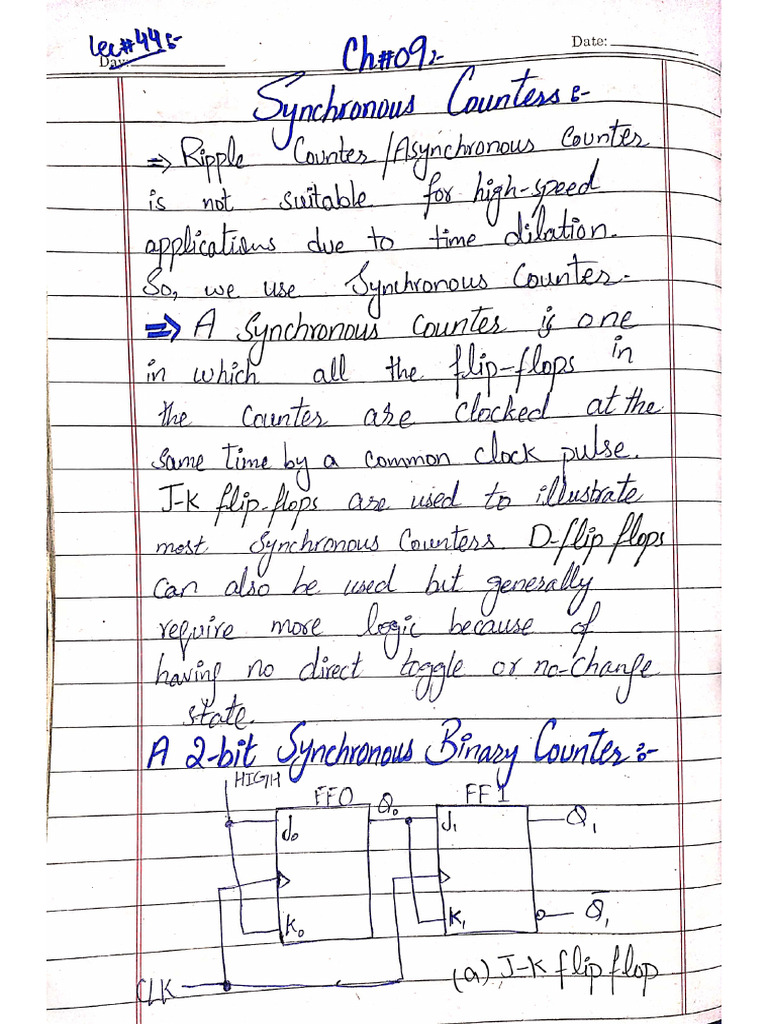 Lec#44:-
Day:
Ch#09:-
Date:
Synchronous Counters:-
⇒ Ripple Counter/Asynchronous Counter
is not suitable for high-speed
applications due to time dilation.
So, we use Synchronous Counter.
⇒ A Synchronous counter is one
in which all the flip-flops in
the counter are clocked at the
same time by a common clock pulse.
J-K flip-flops are used to illustrate
most Synchronous Counters. D-flip flops
can also be used but generally
require more logic because of
having no direct toggle or no-change
state.
A 2-bit Synchronous Binary Counter:-
HIGH
FF0
Q₀
FF1
J₀
J₁
Q₁
K₀
K₁
Q̅₁
CLK
(a) J-K flip flop